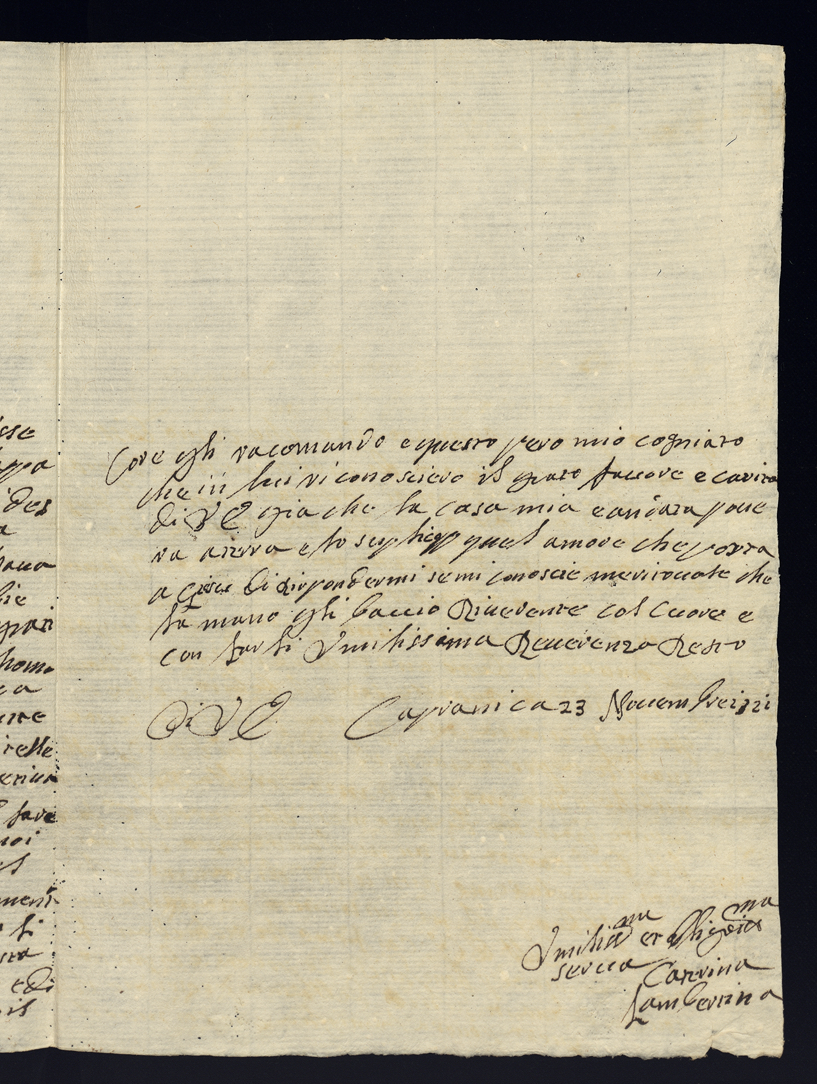 sse
ppa
ides
a
haua
bie
gnari
homa
ca
ene
irelle
fare
uoi
el
sra
edi
il
Core gli racomando e questo pero mio cogniato
che in lui riconosciero il grato fauore e carita
di V E gia che la casa mia e andara poue
ra a terra e lo suplico quel amore che porta
a di rispondermi se mi conoscie meriteuole che
la mano gli baccio Riuerente col Cuore e
con farli Vmilissima Reuerenza Resto
Di V E Capranica 23 Nouembre 1721
Vmilia ma et obligatis ma
serua Caterina
Lambertina